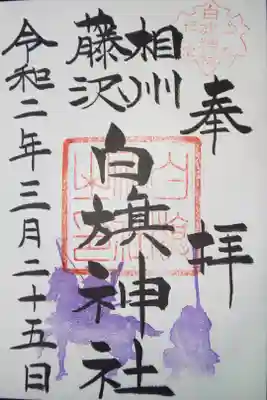 奉拝
相州
藤沢
白旗神社
令和二年三月二十五日